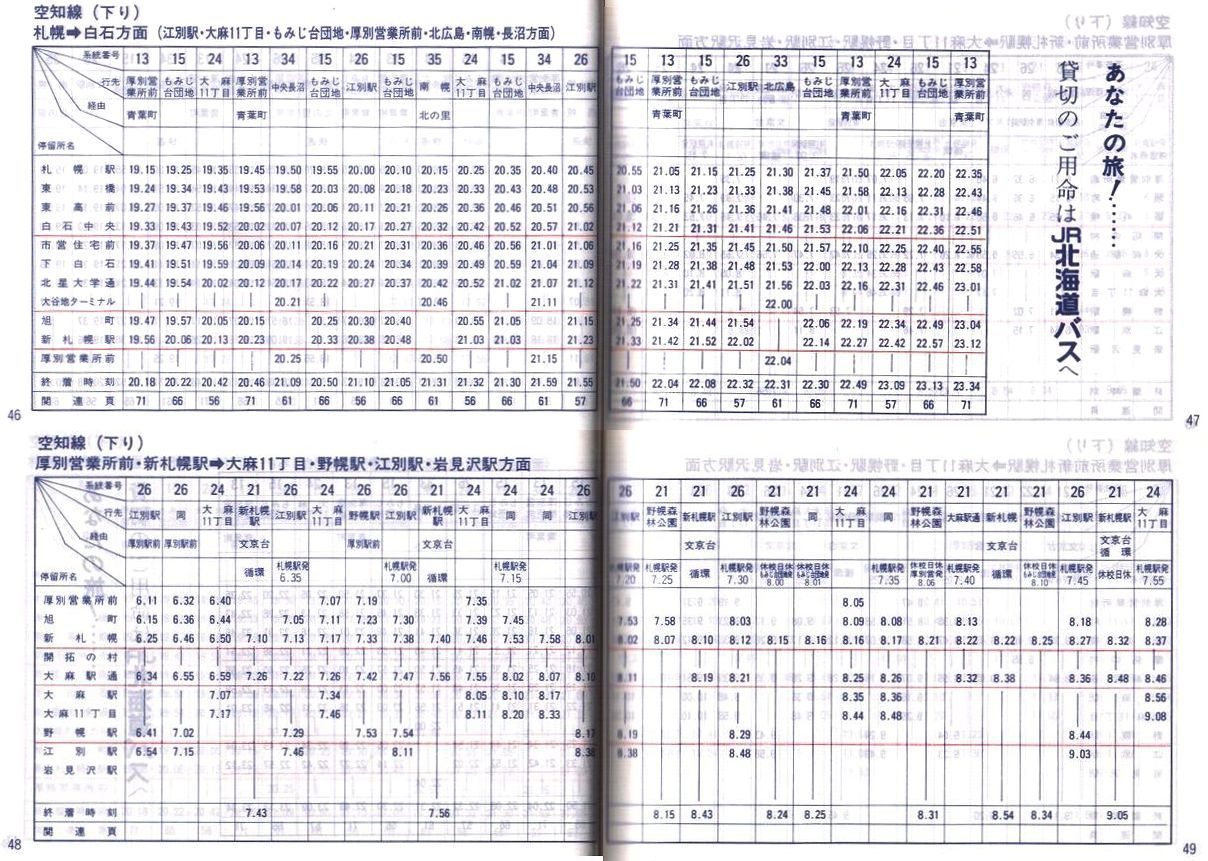 空知線（下り）
札幌➡白石方面（江別駅・大麻11丁目・もみじ台団地・厚別営業所前・北広島・南幌・長沼方面）
系統番号 13 15 24 13 34 15 26 15 35 24 15 34 26
行先 厚別営業所前 もみじ台団地 大麻11丁目 厚別営業所前 中央長沼 もみじ台団地 江別駅 もみじ台団地 南幌 大麻11丁目 もみじ台団地 中央長沼 江別駅
経由 青葉町 青葉町 北の里
停留所名
札幌駅 19.15 19.25 19.35 19.45 19.50 19.55 20.00 20.10 20.15 20.25 20.35 20.40 20.45
東橋 19.24 19.34 19.43 19.53 19.58 20.03 20.08 20.18 20.23 20.33 20.43 20.48 20.53
東高前 19.27 19.37 19.46 19.56 20.01 20.06 20.11 20.21 20.26 20.36 20.46 20.51 20.56
白石中央 19.33 19.43 19.52 20.02 20.07 20.12 20.17 20.27 20.32 20.42 20.52 20.57 21.02
市営住宅前 19.37 19.47 19.56 20.06 20.11 20.16 20.21 20.31 20.36 20.46 20.56 21.01 21.06
下白石 19.41 19.51 19.59 20.09 20.14 20.19 20.24 20.34 20.39 20.49 20.59 21.04 21.09
北星大学通 19.44 19.54 20.02 20.12 20.17 20.22 20.27 20.37 20.42 20.52 21.02 21.07 21.12
大谷地ターミナル 20.21 20.46 21.11
旭町 19.47 19.57 20.05 20.15 20.25 20.30 20.40 20.55 21.05 21.15
新札幌駅 19.56 20.06 20.13 20.23 20.33 20.38 20.48 21.03 21.03 21.23
厚別営業所前 20.25 20.50 21.15
終着時刻 20.18 20.22 20.42 20.46 21.09 20.50 21.10 21.05 21.31 21.32 21.30 21.59 21.55
関連頁 71 66 56 71 61 66 57 66 61 56 66 61 57
46
15 13 15 26 33 15 13 24 15 13
もみじ台団地 厚別営業所前 もみじ台団地 江別駅 北広島 もみじ台団地 厚別営業所前 大麻11丁目 もみじ台団地 厚別営業所前
青葉町 青葉町 青葉町
20.55 21.05 21.15 21.25 21.30 21.37 21.50 22.05 22.20 22.35
21.03 21.13 21.23 21.33 21.38 21.45 21.58 22.13 22.28 22.43
21.06 21.16 21.26 21.36 21.41 21.48 22.01 22.16 22.31 22.46
21.12 21.21 21.31 21.41 21.46 21.53 22.06 22.21 22.36 22.51
21.16 21.25 21.35 21.45 21.50 21.57 22.10 22.25 22.40 22.55
21.19 21.28 21.38 21.48 21.53 22.00 22.13 22.28 22.43 22.58
21.22 21.31 21.41 21.51 21.56 22.03 22.16 22.31 22.46 23.01
22.00
21.25 21.34 21.44 21.54 22.06 22.19 22.34 22.49 23.04
21.33 21.42 21.52 22.02 22.14 22.27 22.42 22.57 23.12
22.04
21.50 22.04 22.08 22.32 22.31 22.30 22.49 23.09 23.13 23.34
66 71 66 57 61 66 71 57 66 71
あなたの旅！………
貸切のご用命はJR北海道バスへ
47
空知線（下り）
厚別営業所前・新札幌駅➡大麻11丁目・野幌駅・江別駅・岩見沢駅方面
系統番号 26 26 24 21 26 24 26 26 21 24 24 24 26
行先 江別駅 同 大麻11丁目 新札幌駅 江別駅 大麻11丁目 野幌駅 江別駅 新札幌駅 大麻11丁目 同 同 江別駅
経由 厚別駅前 厚別駅前 文京台 厚別駅前 文京台
循環 札幌駅発6.35 札幌駅発7.00 循環 札幌駅発7.15
停留所名
厚別営業所前 6.11 6.32 6.40 7.07 7.19 7.35
旭町 6.15 6.36 6.44 7.05 7.11 7.23 7.30 7.39 7.45
新札幌 6.25 6.46 6.50 7.10 7.13 7.17 7.33 7.38 7.40 7.46 7.53 7.58 8.01
開拓の村
大麻駅通 6.34 6.55 6.59 7.26 7.22 7.26 7.42 7.47 7.56 7.55 8.02 8.07 8.10
大麻駅 7.07 7.34 8.05 8.10 8.17
大麻11丁目 7.17 7.46 8.11 8.20 8.33
野幌駅 6.41 7.02 7.29 7.53 7.54 8.17
江別駅 6.54 7.15 7.46 8.11 8.38
岩見沢駅
終着時刻 7.43 7.56
関連頁
48
26 21 21 26 21 21 24 24 21 21 21 21 26 21 24
江別駅 野幌森林公園 新札幌駅 江別駅 野幌森林公園 同 大麻11丁目 同 野幌森林公園 大麻駅通 新札幌 野幌森林公園 江別駅 新札幌駅 大麻11丁目
文京台 文京台 文京台循環
札幌駅発7.20 札幌駅発7.25 循環 札幌駅発7.30 休校日休もみじ台団地発8.00 休校日休もみじ台団地発8.01 札幌駅発7.35 休校日休厚別営所発8.06 札幌駅発7.40 循環 休校日休もみじ台団地発8.10 札幌駅発7.45 休校日休 札幌駅発7.55
8.05
7.53 7.58 8.03 8.09 8.08 8.13 8.18 8.28
8.02 8.07 8.10 8.12 8.15 8.16 8.16 8.17 8.21 8.22 8.22 8.25 8.27 8.32 8.37
8.11 8.19 8.21 8.25 8.26 8.32 8.38 8.36 8.48 8.46
8.35 8.36 8.56
8.44 8.48 9.08
8.19 8.29 8.44
8.38 8.48 9.03
8.15 8.43 8.24 8.25 8.31 8.54 8.34 9.05
49